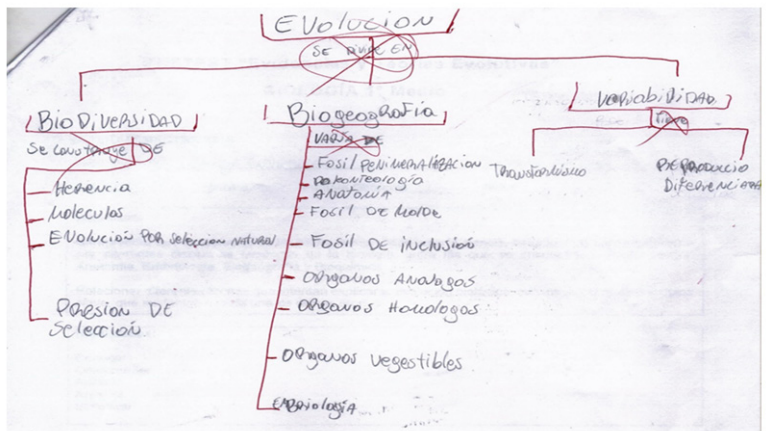 EVOLUCION
SE DIVIDE EN
BIODIVERSIDAD
SE CONSTRUYE DE
HERENCIA
MOLECULAS
EVOLUCIÓN POR SELECCION NATURAL
PRESION DE
SELECCIÓN
BIOGEOGRAFÍA
VARÍA DE
FOSIL PERMINERALIZACION
ANATOMÍA
FOCIL DE MOLDE
FOSIL DE INCLUSIÓN
ORGANOS ANALOGOS
ORGANOS HOMOLOGOS
ORGANOS VEGESTIBLES
EMBRIOLOGÍA
VARIABILIDAD
TIENE
TRANSFORMISMO
REPRODUCCIO
DIFERENCIADA